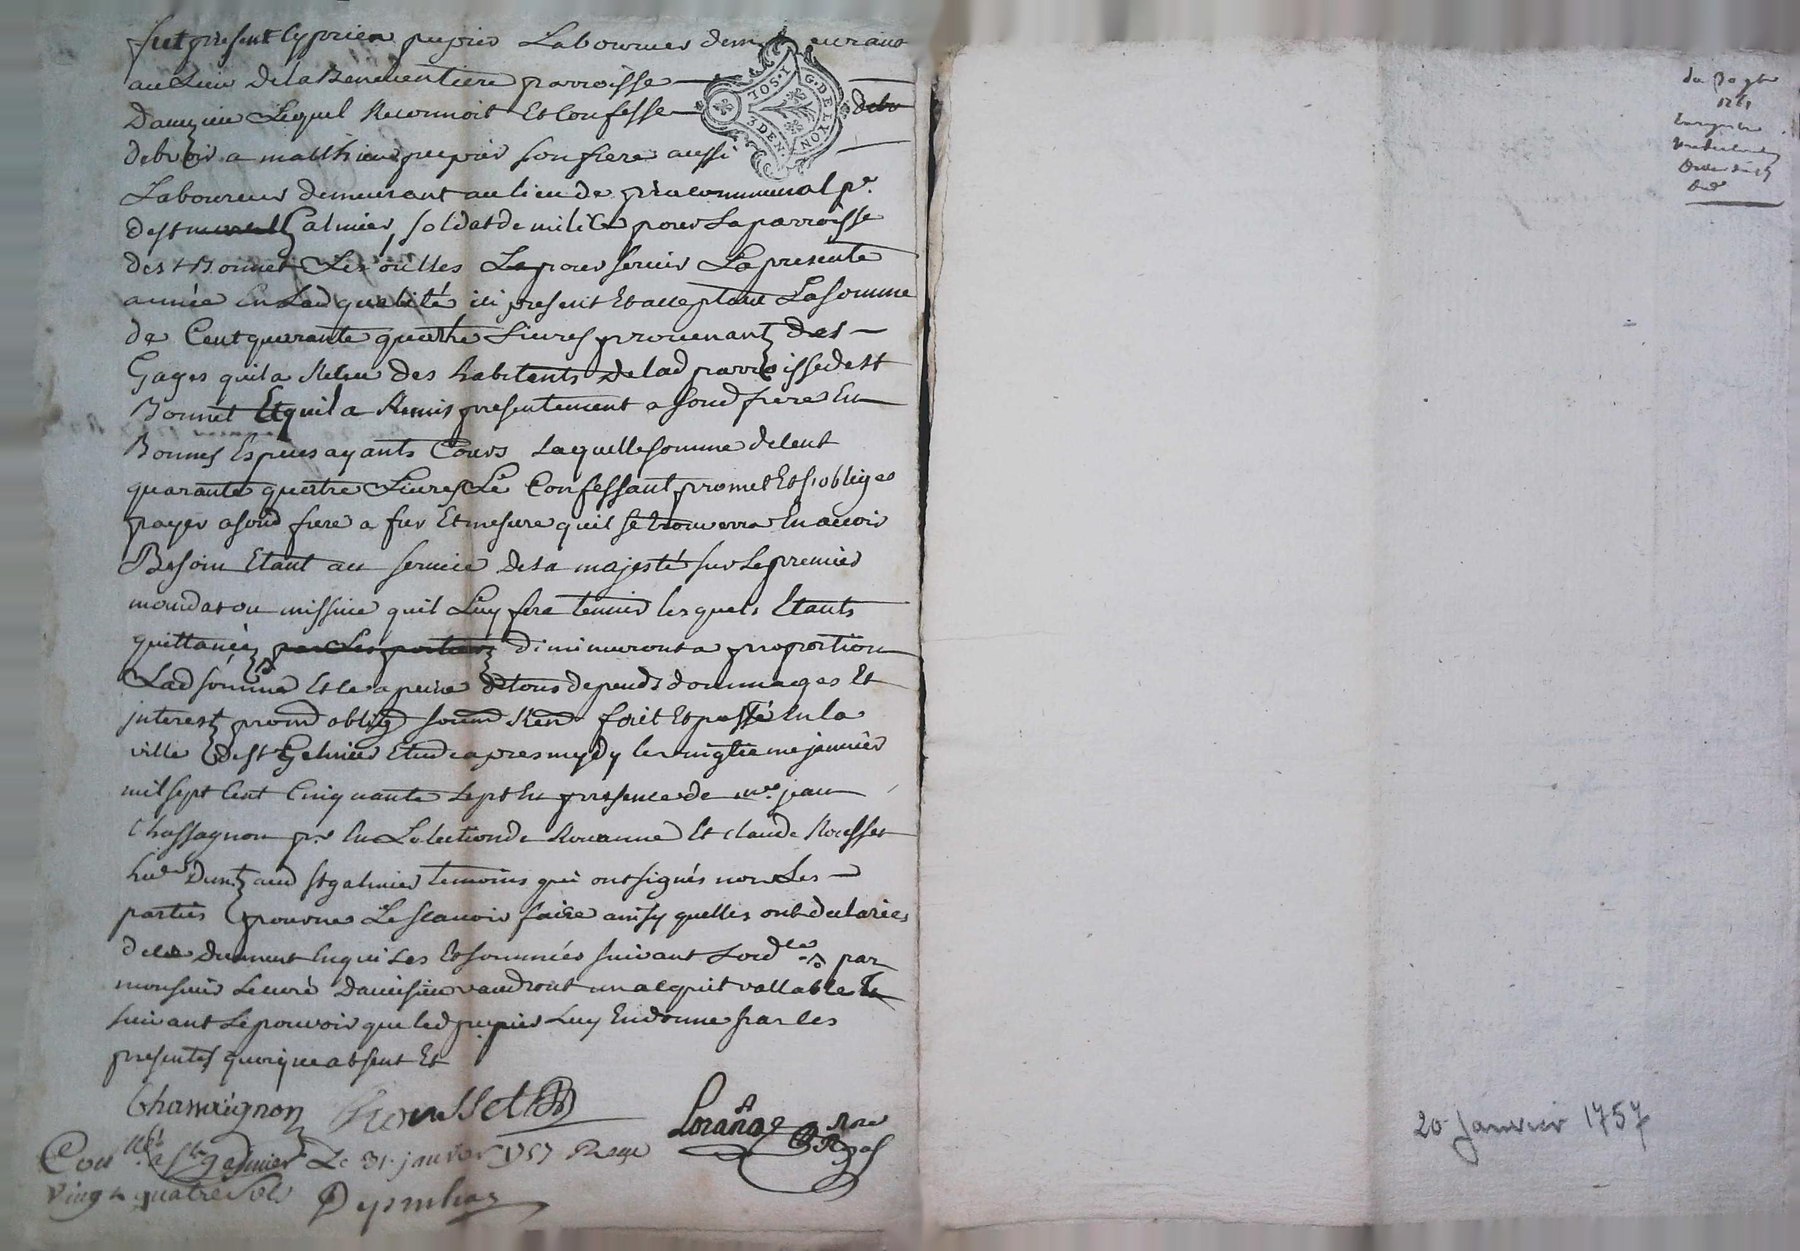 fut present Cyprien pupier Laboureur demeurant
au Lieu de la Beneventiere parroisse
Dauezieu Lequel Reconnoit Et Confesse debv
debvoir a matthieu pupier son frere aussi
Laboureur demeurant au lieu de pra communal pe.
de st Galmier, soldat de milice pour La parroisse
de st Bonnet Les oülles La pour servir La presente
année En Lad qualité ici present Et acceptant La somme
de Cent quarante quatre Livres provenant des
Gages quil a Retiré des habitents de lad parroisse de st
Bonnet Et quil a Remis presentement a sond frere En
Bonnes Especes ayants Cours Laquelle somme de Cent
quarante quatre Livres Le Confessant promet Et soblige
payer a sond frere a fur Et mesure quil se trouverra En avoir
Besoin Etant au service de sa majesté sur Le premier
mandat ou missive quil Luy fera tennir lesquels Etants
quittancés par Les porteurs diminueront a proportion
Lad somme Et ce a peine de tous depends dommages Et
interest promd oblig soum Ren fait Et passé En la
ville de st Galmier Etude apres mydy le vingtieme janvier
mil sept Cent Cinquante sept En presence de me. jean
Chassagnon pr. En Lelection de Roüanne Et claude Rousset
aud st galmier temoins qui ont signés non Les
parties pour ne Le scavoir faire ainsy quelles ont declarées
de ce Duement Enquises Et sommées suivant Lord ce par
monsieur Le curé Daveisieu vaudront un acquit vallable
suivant Le pouvoir que led pupier Luy En donne par les
presentes quoique absent Et
Chassaignon Rousset
Lorange Nore
Royal
Con llé a St galmier Le 31. janvier 1757 Reçu
vingt quatre sols
TOS. I G. DE LYON
3 DEN
20 Janvier 1757